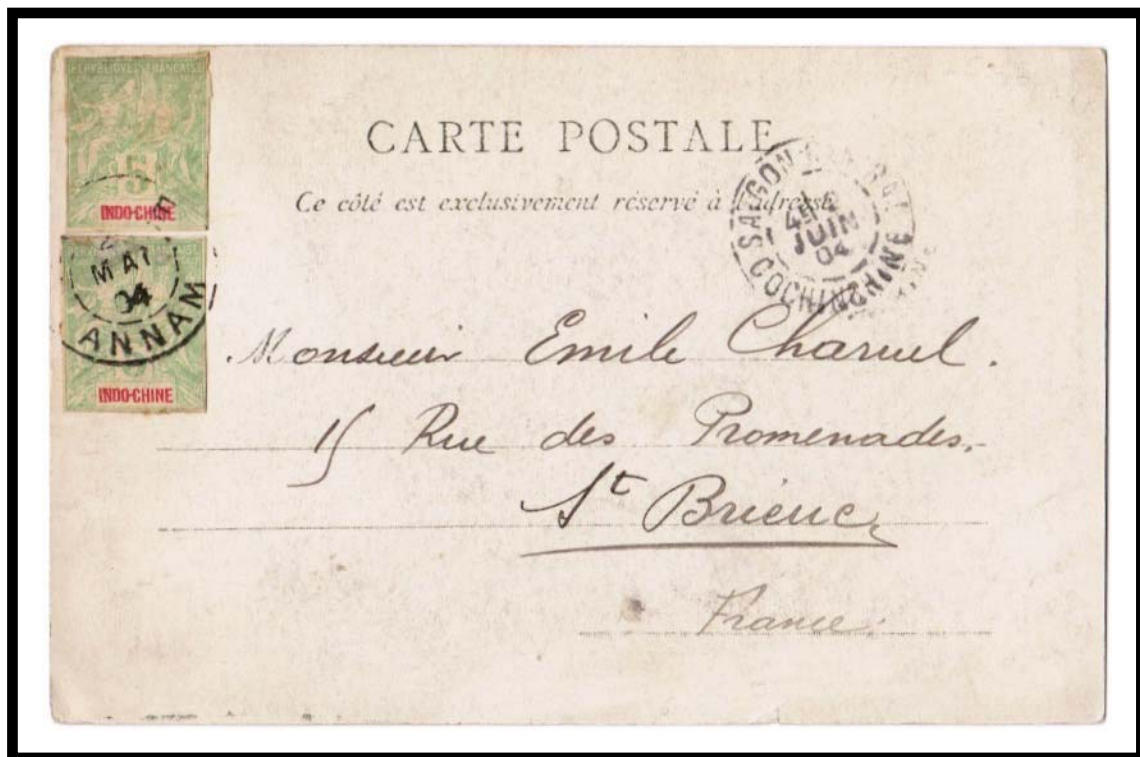 REPUBLIQUE FRANÇAISE
5
INDO-CHINE
MAI
04
ANNAM
INDO-CHINE
CARTE POSTALE
Ce côté est exclusivement réservé à l'adresse
SAIGON
JUIN
04
COCHINCHINE
Monsieur Emile Charuel.
15 Rue des Promenades.
St Brieuc
France.